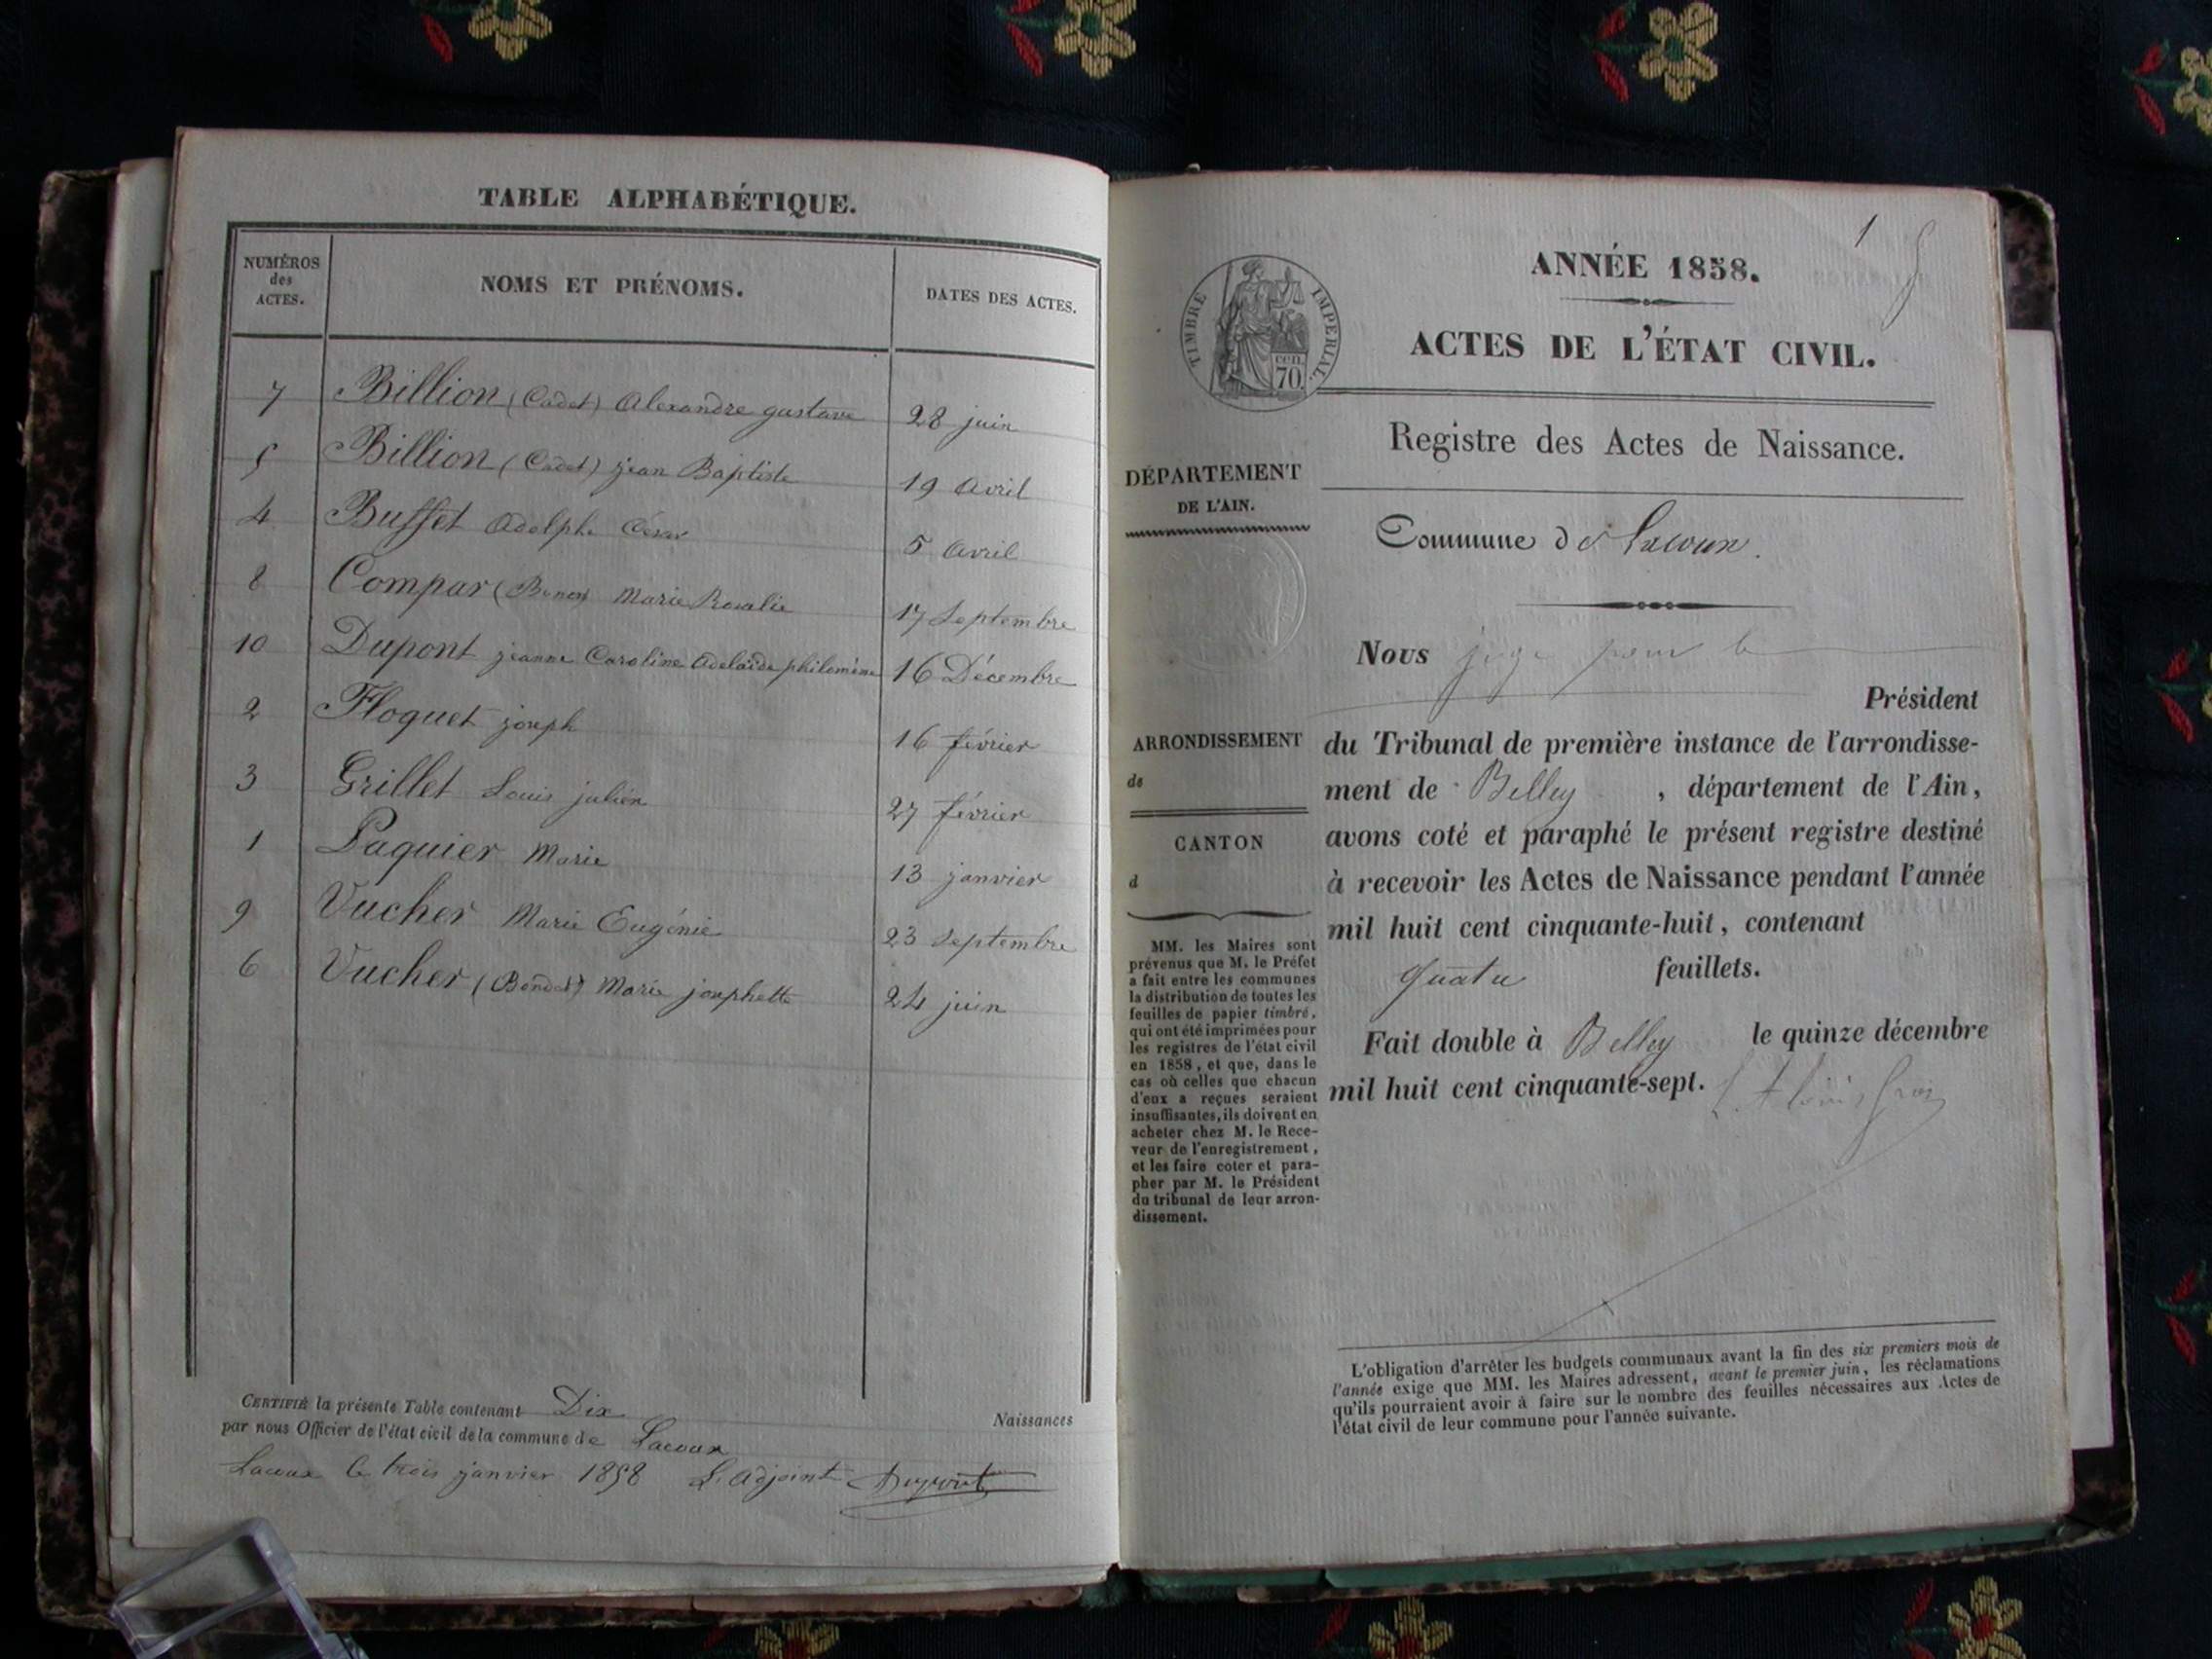 TABLE ALPHABÉTIQUE.
NUMÉROS des ACTES. NOMS ET PRÉNOMS. DATES DES ACTES.
7 Billion (Cadet) Alexandre gustave 28 juin
5 Billion (Cadet) jean Baptiste 19 Avril
4 Buffet Adolphe César 5 Avril
8 Compar Marie Rosalie 17 Septembre
10 Dupont jeanne Caroline Adelaïde philomène 16 Décembre
2 Floquet joseph 16 février
3 Grillet Louis julien 27 février
1 Paquier Marie 13 janvier
9 Vucher Marie Eugénie 23 Septembre
6 Vucher (Bondet) Marie josephette 24 juin
CERTIFIÉ la présente Table contenant Dix Naissances
par nous Officier de l'état civil de la commune de Lacoux
Lacoux le trois janvier 1858 L'adjoint Dupont
1
ANNÉE 1858.
TIMBRE IMPERIAL.
cen. 70.
ACTES DE L'ÉTAT CIVIL.
Registre des Actes de Naissance.
DÉPARTEMENT
DE L'AIN.
Commune de Lacoux.
Nous juge pour le
Président
ARRONDISSEMENT
de
CANTON
d
du Tribunal de première instance de l'arrondisse-
ment de Belley, département de l'Ain,
avons coté et paraphé le présent registre destiné
à recevoir les Actes de Naissance pendant l'année
mil huit cent cinquante-huit, contenant
quatre feuillets.
Fait double à Belley le quinze décembre
mil huit cent cinquante-sept.
MM. les Maires sont
prévenus que M. le Préfet
a fait entre les communes
la distribution de toutes les
feuilles de papier timbré,
qui ont été imprimées pour
les registres de l'état civil
en 1858, et que, dans le
cas où celles que chacun
d'eux a reçues seraient
insuffisantes, ils doivent en
acheter chez M. le Rece-
veur de l'enregistrement,
et les faire coter et para-
pher par M. le Président
du tribunal de leur arron-
dissement.
L'obligation d'arrêter les budgets communaux avant la fin des six premiers mois de
l'année exige que MM. les Maires adressent, avant le premier juin, les réclamations
qu'ils pourraient avoir à faire sur le nombre des feuilles nécessaires aux Actes de
l'état civil de leur commune pour l'année suivante.